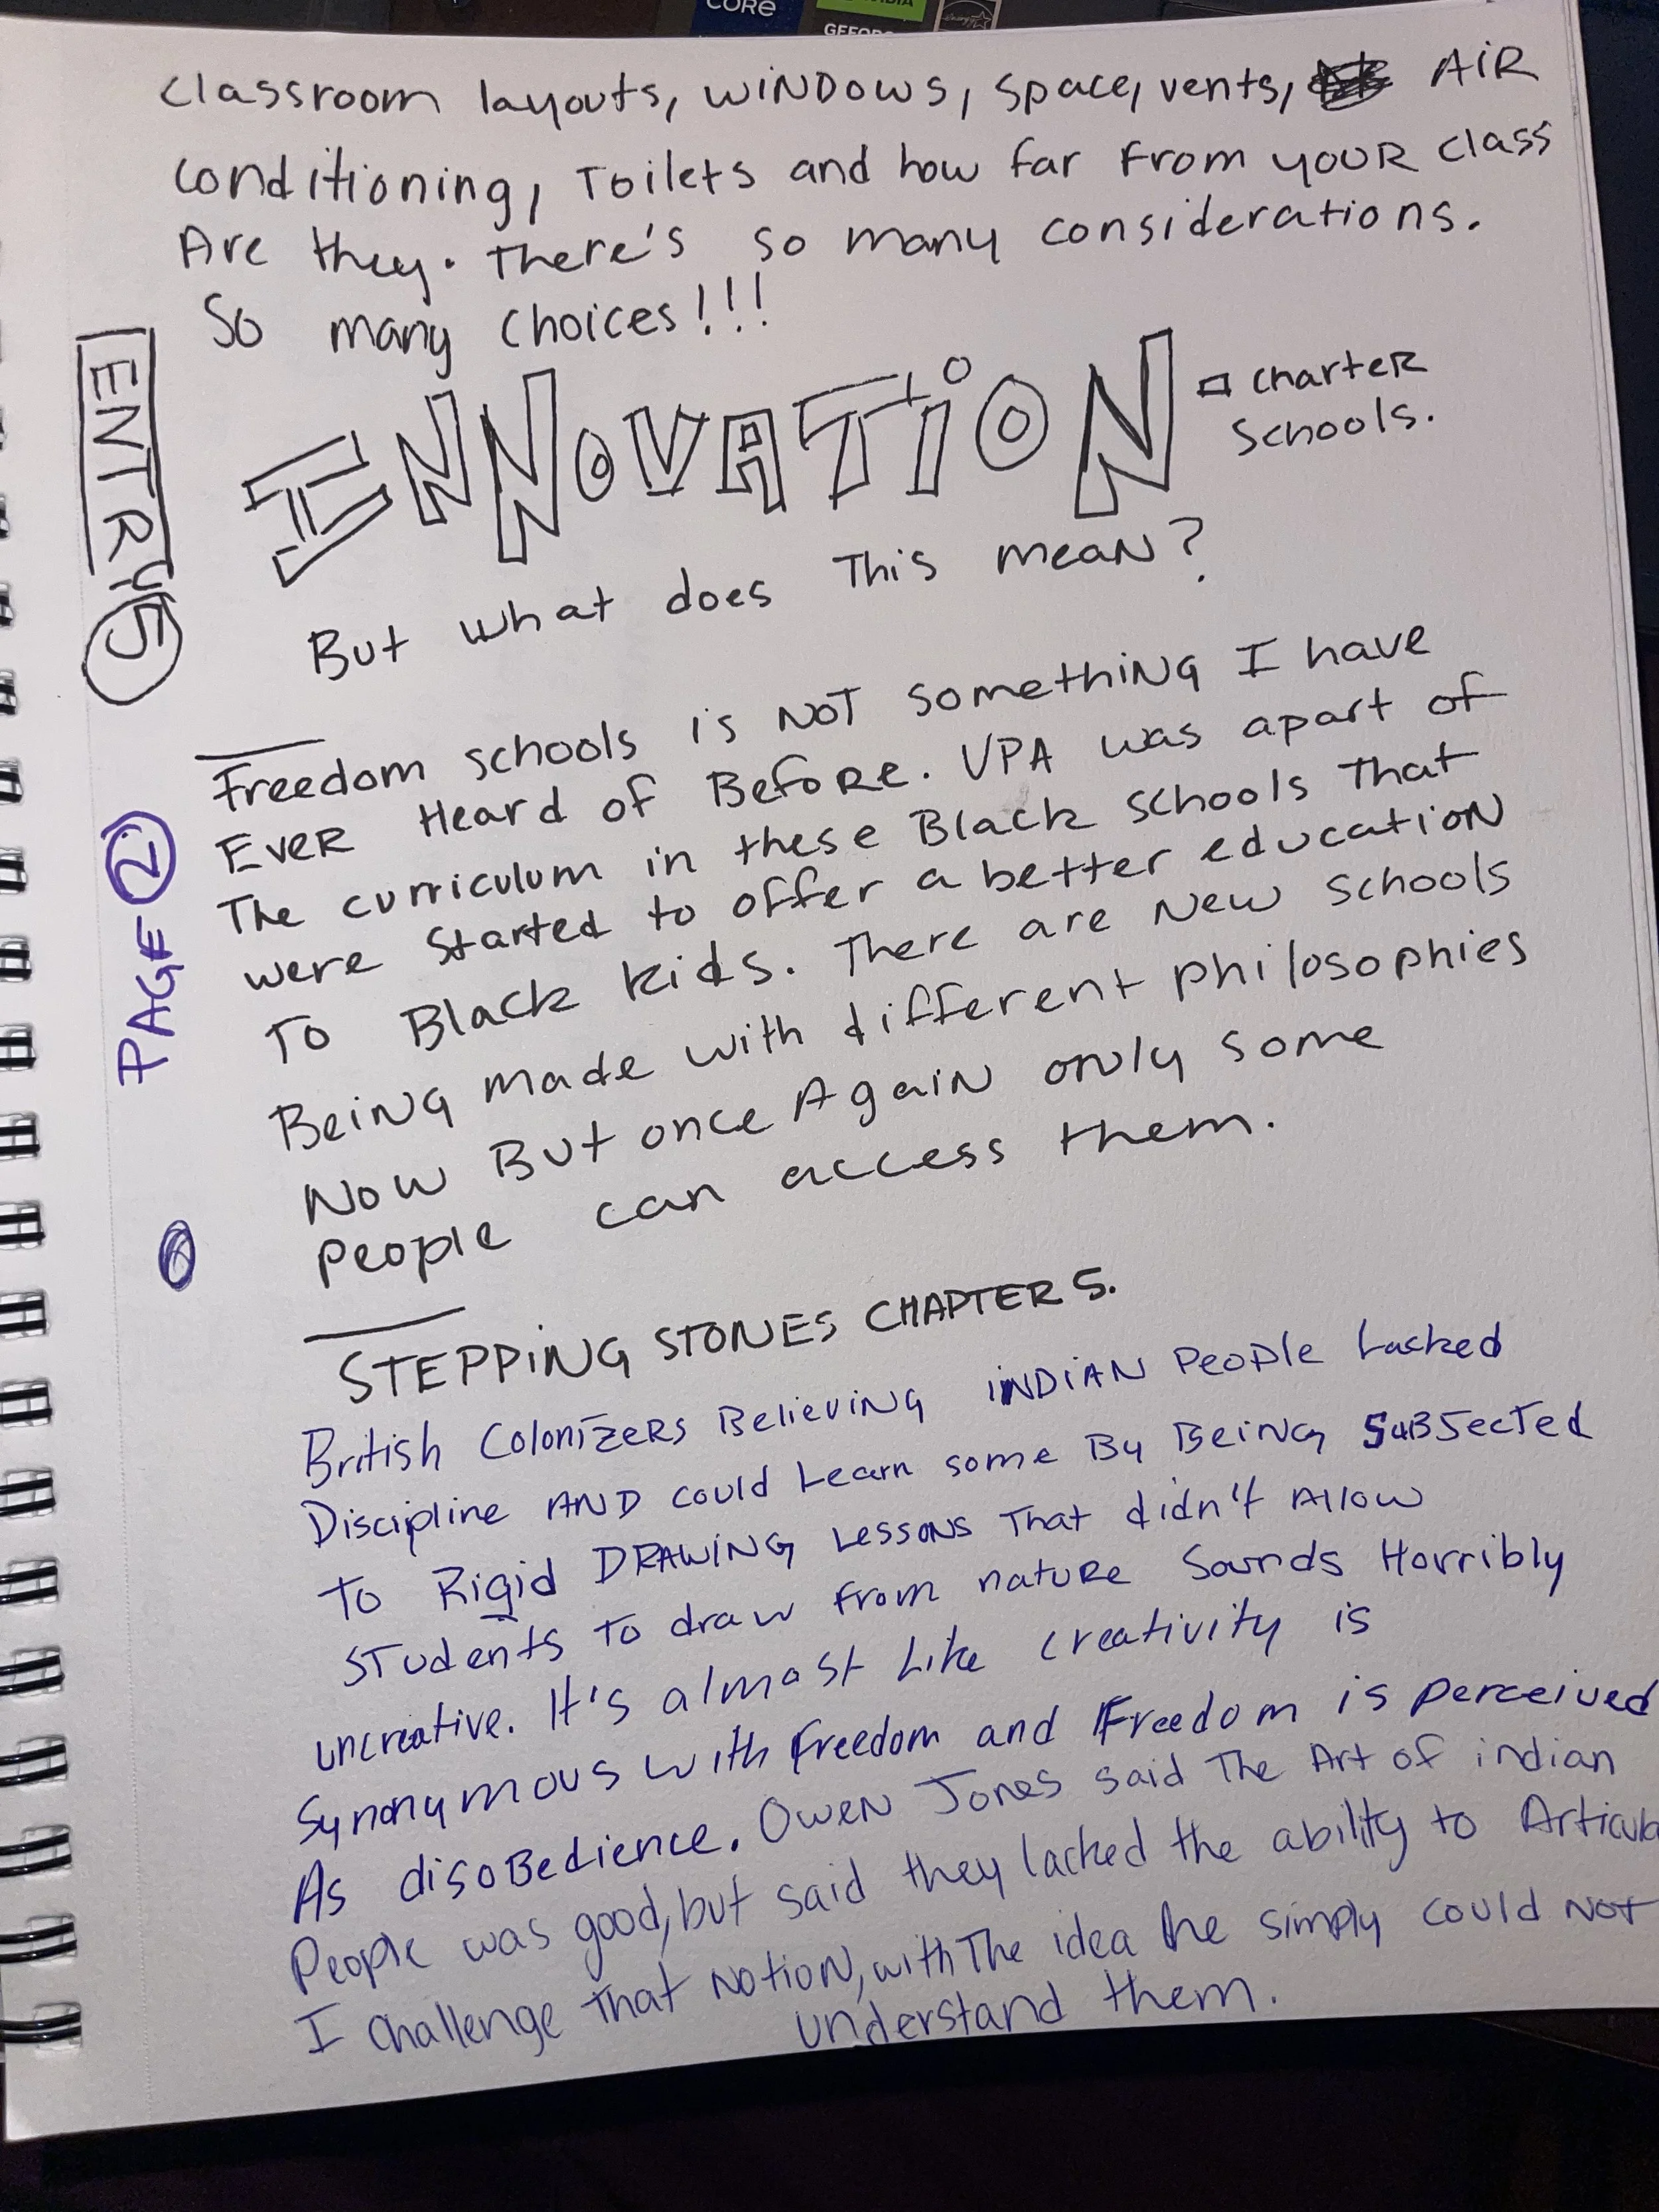 CORE
GEFORC
classroom layouts, WINDOWS, space, vents, AIR
conditioning, Toilets and how far From YOUR class
Are they. There's so many considerations.
So many choices!!!
INNOVATION
Charter
Schools.
But what does This mean?
ENTRY 5
Freedom schools is NOT something I have
Ever Heard of Before. VPA was apart of
The curriculum in these Black schools That
were started to offer a better education
To Black kids. There are New schools
Being made with different philosophies
Now But once Again only some
People can access them.
PAGE 2
STEPPING STONES CHAPTER 5.
British Colonizers Believing iNDiAN People Lacked
Discipline AND could Learn some By Being SUBJected
To Rigid DRAWING Lessons That didn't Allow
STudents To draw from nature Sounds Horribly
uncreative. It's almost Like creativity is
Synonymous with freedom and Freedom is perceived
As disoBedience. Owen Jones said The Art of indian
People was good, but said they lacked the ability to Articula
I challenge That Notion, with The idea he simply could Not
understand them.